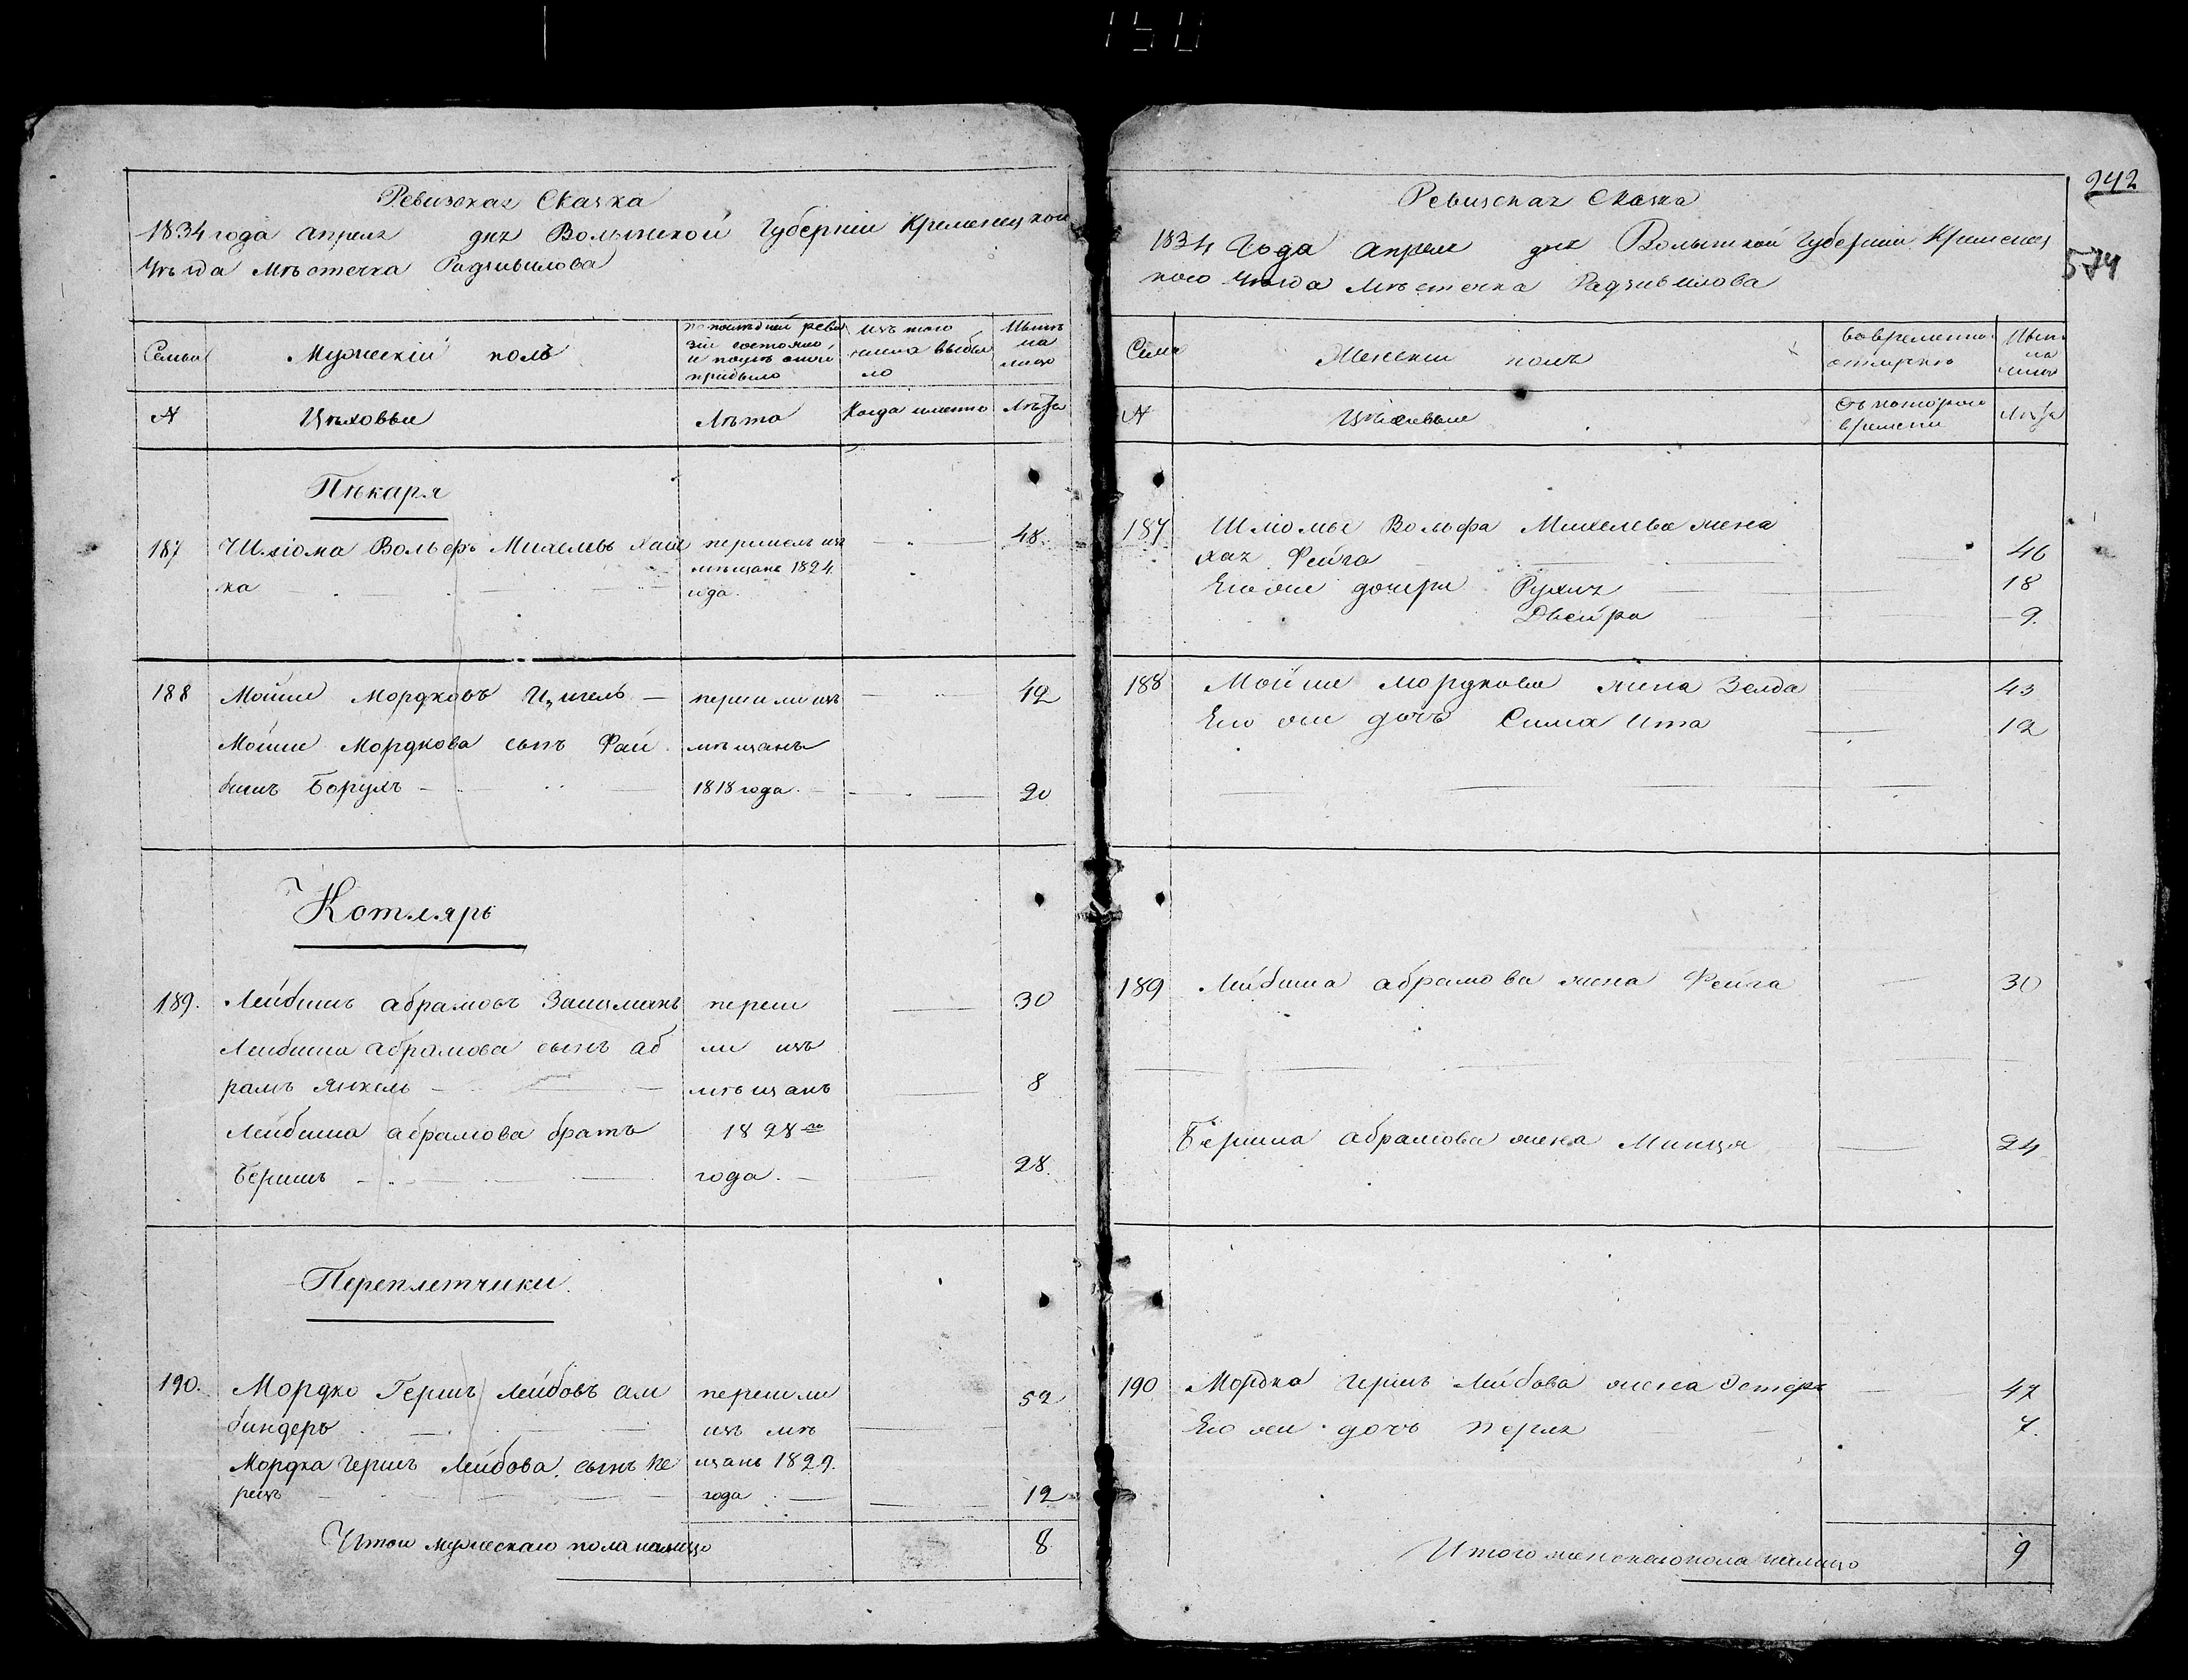 150
Ревизская Сказка
1834 года апреля дня Волынской Губерніи Кременецкой
Уѣзда Мѣстечка Радзивилова
Семьи
Мужескій полъ
по последней реви
зіи состояло,
и послѣ оной
прибыло
изъ того
числа выбы
ло
Нынѣ
на
лицо
№
Цѣховые
Лѣта
Когда именно
Лѣта
Пѣкаря
187 Шліома Вольфъ Михелевъ Хаи перешелъ изъ 48.
ка мѣщанъ 1824.
года.
188 Мойше Мордковъ Цигель перешли изъ 42
Мойше Мордкова сынъ Фай мѣщанъ
бишъ Борухъ 1818 года. 20
Котляръ
189. Лейбишъ абрамовъ Зальцманъ переш 30
Лейбиша абрамова сынъ аб ли изъ
рамъ Янкель мѣщанъ 8
Лейбиша абрамова братъ 1828го
Беришъ года. 28.
Переплетчики.
190. Мордко Гершъ Лейбовъ аин перешли 52
биндеръ изъ мѣ
Мордка Герша Лейбова сынъ Пе щанъ 1829.
рецъ года 12
Итого мужескаго пола налицо 8
242
574
Ревизская Сказка
1834 Года апреля дня Волынской Губерніи Кременец
кого Уѣзда Мѣстечка Радзивилова
Семьи
Женскій полъ
вовременной
отлучкѣ
Нынѣ
на
лицо
№
Цѣховые
Съ котораго
времени
Лѣта
187 Шліомы Вольфа Михелева жена
Хая Фейга 46
Его же дочери Рухля 18
Двейра 9.
188 Мойше Мордкова жена Зелда 43
Его же дочь Сима Ита 12
189 Лейбиша абрамова жена Фейга 30
Бериша абрамова жена Минця 24
190 Мордка Герша Лейбова жена Эстеръ 47
Его же дочь Перля 7.
Итого женскаго пола налицо 9